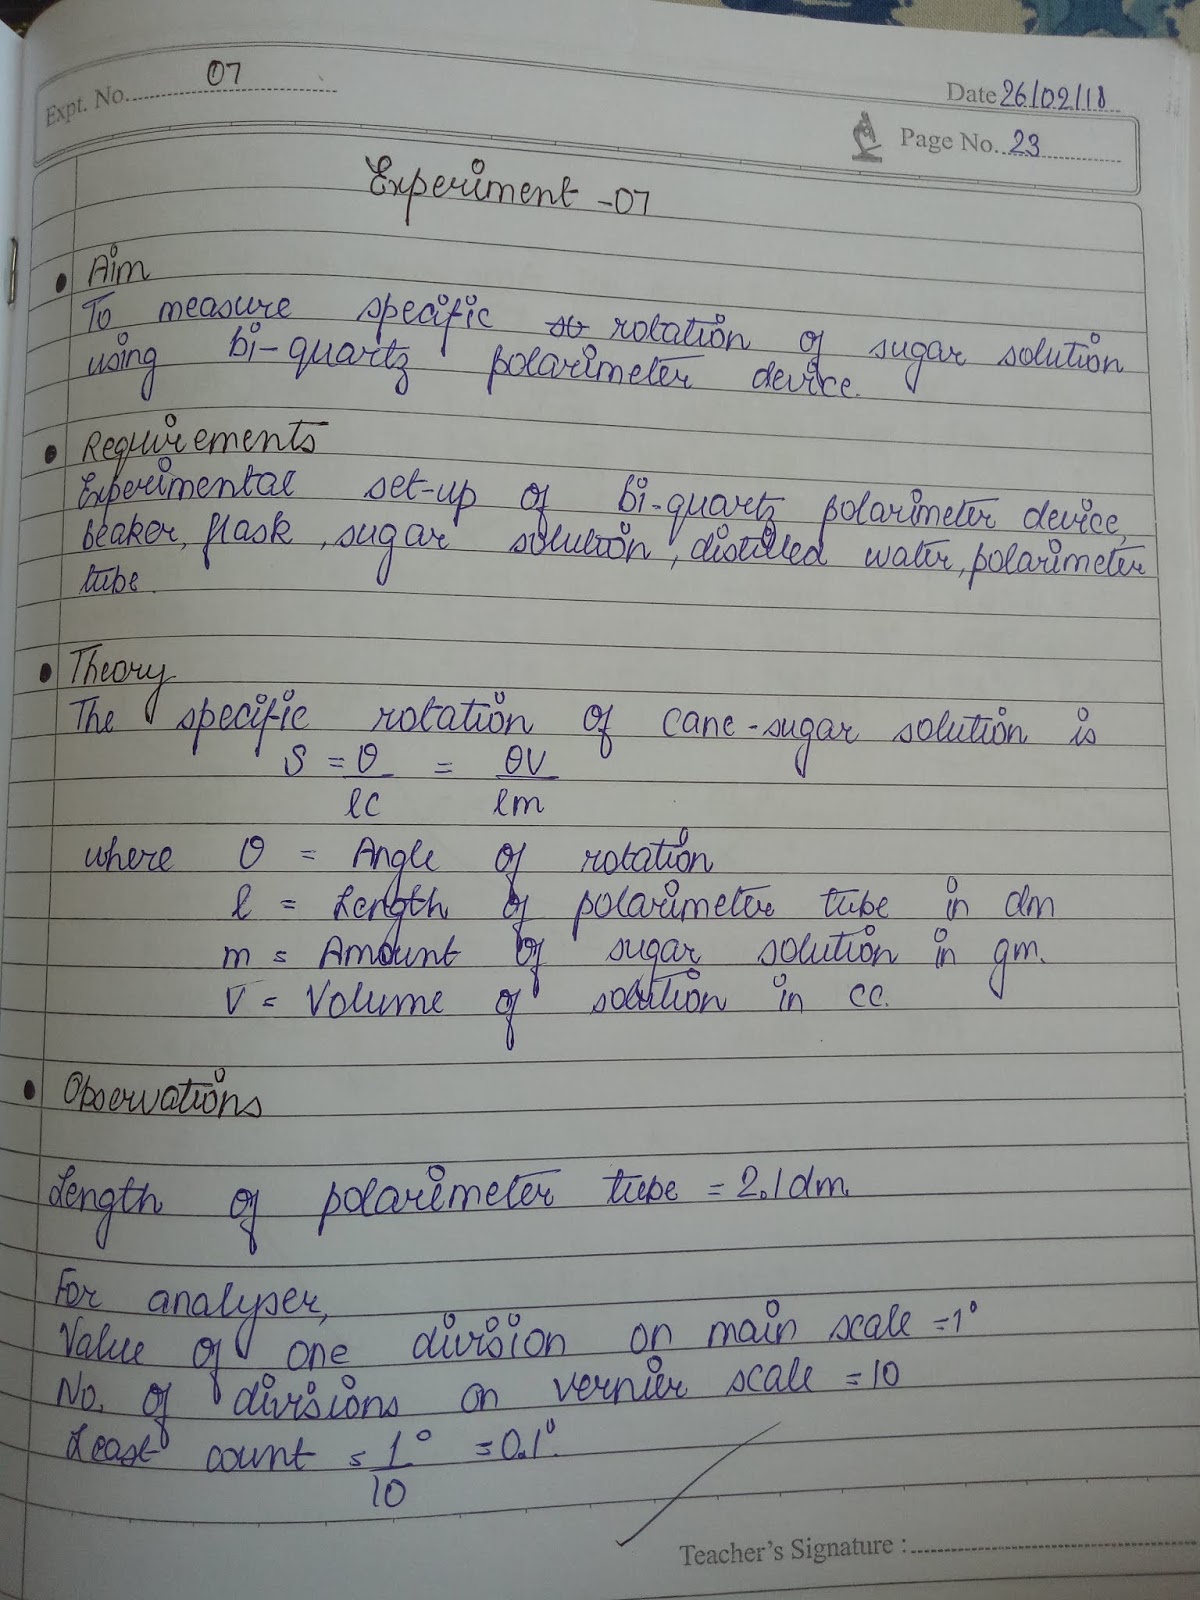 Expt. No. 07
Date 26/02/18
Page No. 23
Experiment -07
• Aim
To measure specific so rotation of sugar solution
using bi-quartz polarimeter device.
• Requirements
Experimental set-up of bi-quartz polarimeter device,
beaker, flask, sugar solution, distilled water, polarimeter
tube.
• Theory
The specific rotation of cane-sugar solution is
S = θ/lc = θV/lm
where θ = Angle of rotation
l = Length of polarimeter tube in dm
m = Amount of sugar solution in gm.
V = Volume of solution in cc.
• Observations
Length of polarimeter tube = 2.1dm.
For analyser,
Value of one division on main scale = 1°
No. of divisions on vernier scale = 10
Least count = 1°/10 = 0.1°.
Teacher's Signature :